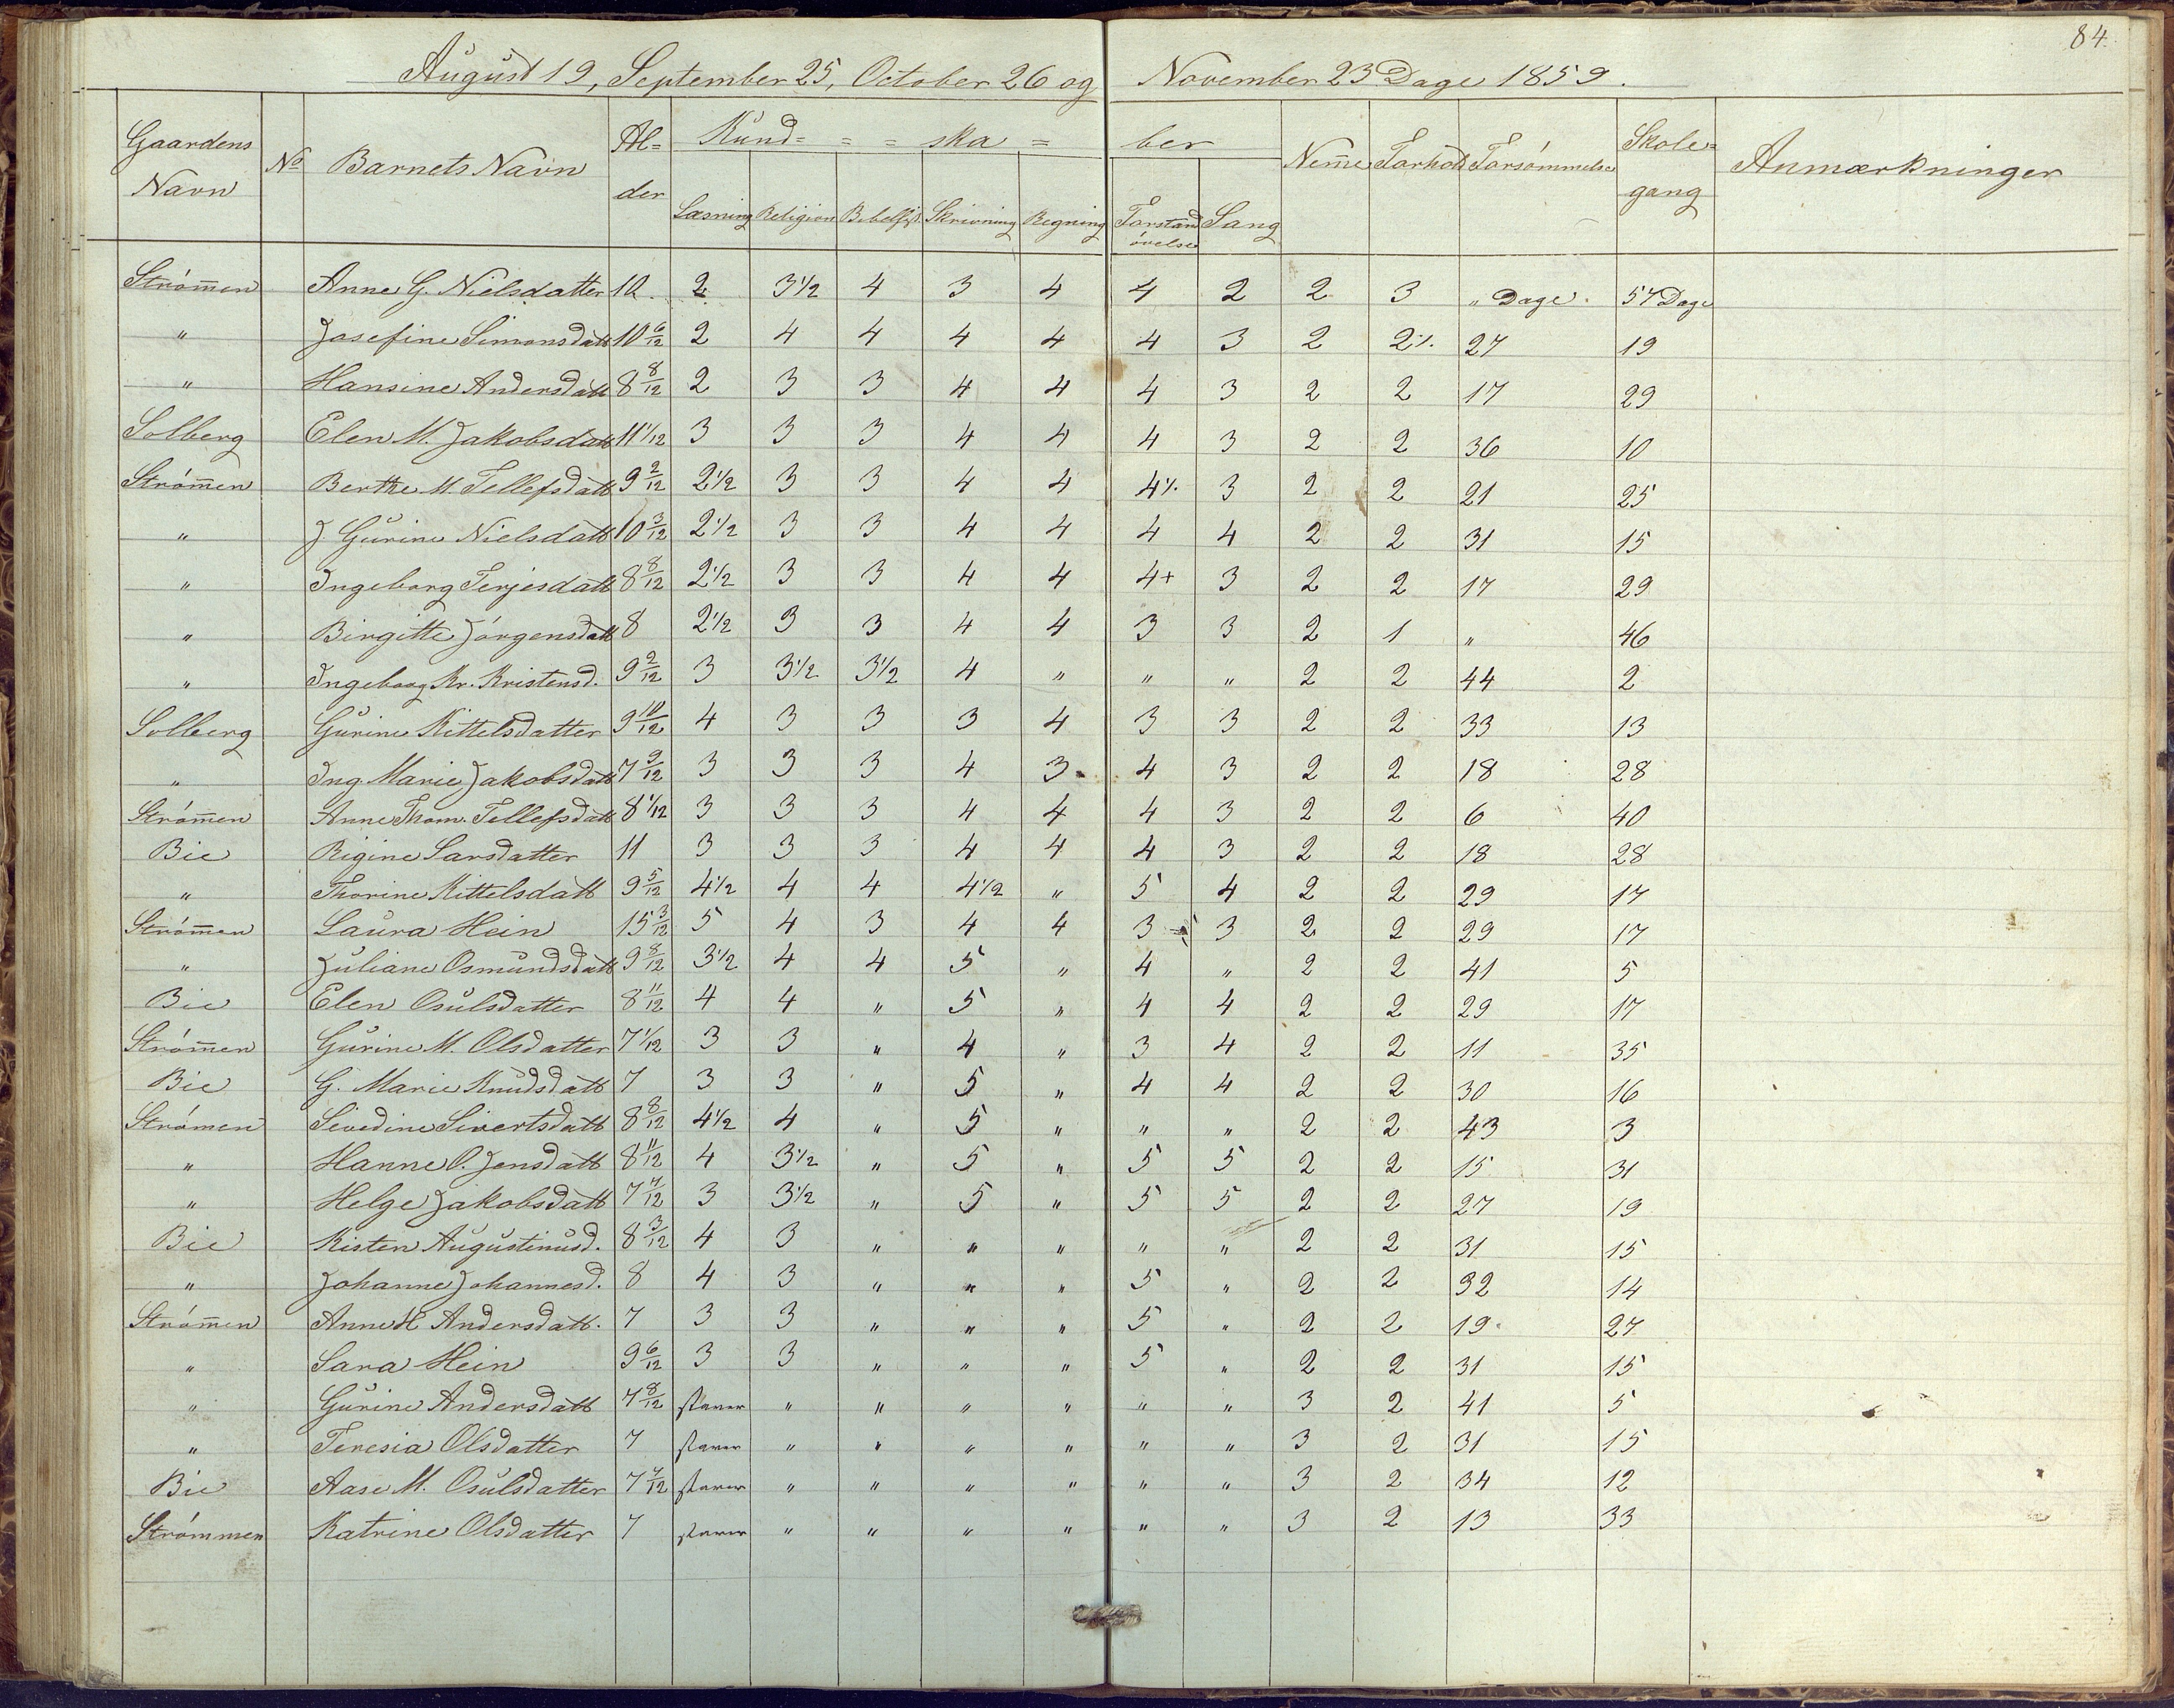 84.
August 19, September 25, October 26 og November 23 Dage 1859.
Gaardens Navn No Barnets Navn Al= der Kund= = = ska = ber Nem̅e Forhold Forsømmelse Skole= gang Anmærkninger
Læsning Religion Skrivning Regning Forstands øvelse Sang
Strøm̅en Anne G. Nielsdatter 10. 2 3½ 4 3 4 4 2 2 3 " Dage. 57 Dage
" Josefine Simonsdatt 10 6/12 2 4 4 4 4 4 3 2 2½ 27 19
" Hansine Andersdatt 8 8/12 2 3 3 4 4 4 3 2 2 17 29
Solberg Elen M. Jakobsdatt 11 1/12 3 3 3 4 4 4 3 2 2 36 10
Strøm̅en Berthe M. Tellefsdatt 9 2/12 2½ 3 3 4 4 4½ 3 2 2 21 25
" J. Gurine Nielsdatt 10 3/12 2½ 3 3 4 4 4 4 2 2 31 15
" Ingeborg Terjesdatt 8 8/12 2½ 3 3 4 4 4+ 3 2 2 17 29
" Birgitte Jørgensdatt 8 2½ 3 3 4 4 3 3 2 1 " 46
" Ingeborg Kr. Kristensd. 9 2/12 3 3½ 3½ 4 " " " 2 2 44 2
Solberg Gurine Kittelsdatter 9 10/12 4 3 3 3 4 3 3 2 2 33 13
" Ing. Marie Jakobsdatt 7 9/12 3 3 3 4 3 4 3 2 2 18 28
Strøm̅en Anne Thom. Tellefsdatt 8 1/12 3 3 3 4 4 4 3 2 2 6 40
Bie Rigine Larsdatter 11 3 3 3 4 4 4 3 2 2 18 28
" Thorine Kittelsdatt 9 5/12 4½ 4 4 4½ " 5 4 2 2 29 17
Strøm̅en Laura Hein 15 3/12 5 4 3 4 4 3 3 2 2 29 17
" Juliane Osmundsdatt 9 8/12 3½ 4 4 5 " 4 " 2 2 41 5
Bie Elen Osulsdatter 8 11/12 4 4 " 5 " 4 4 2 2 29 17
Strøm̅en Gurine M. Olsdatter 7 1/12 3 3 " 4 " 3 4 2 2 11 35
Bie G. Marie Knudsdatt 7 3 3 " 5 " 4 4 2 2 30 16
Strømen Sevedine Sivertsdatt 8 8/12 4½ 4 " 5 " " " 2 2 43 3
" Hanne O. Jensdatt 8 11/12 4 3½ " 5 " 5 5 2 2 15 31
" Helge Jakobsdatt 7 7/12 3 3½ " 5 " 5 5 2 2 27 19
Bie Kisten Augustinusd. 8 3/12 4 3 " " " " " 2 2 31 15
" Johanne Johannesd. 8 4 3 " " " 5 " 2 2 32 14
Strøm̅en Anne H Andersdatt. 7 3 3 " " " 5 " 2 2 19 27
" Sara Hein 9 6/12 3 3 " " " 5 " 2 2 31 15
" Gurine Andersdatt 7 8/12 staver " " " " " " 3 2 41 5
" Teresia Olsdatter 7 staver " " " " " " 3 2 31 15
Bie Aase M. Osulsdatter 7 7/12 staver " " " " " " 3 2 34 12
Strømmen Katrine Olsdatter 7 staver " " " " " " 3 2 13 33